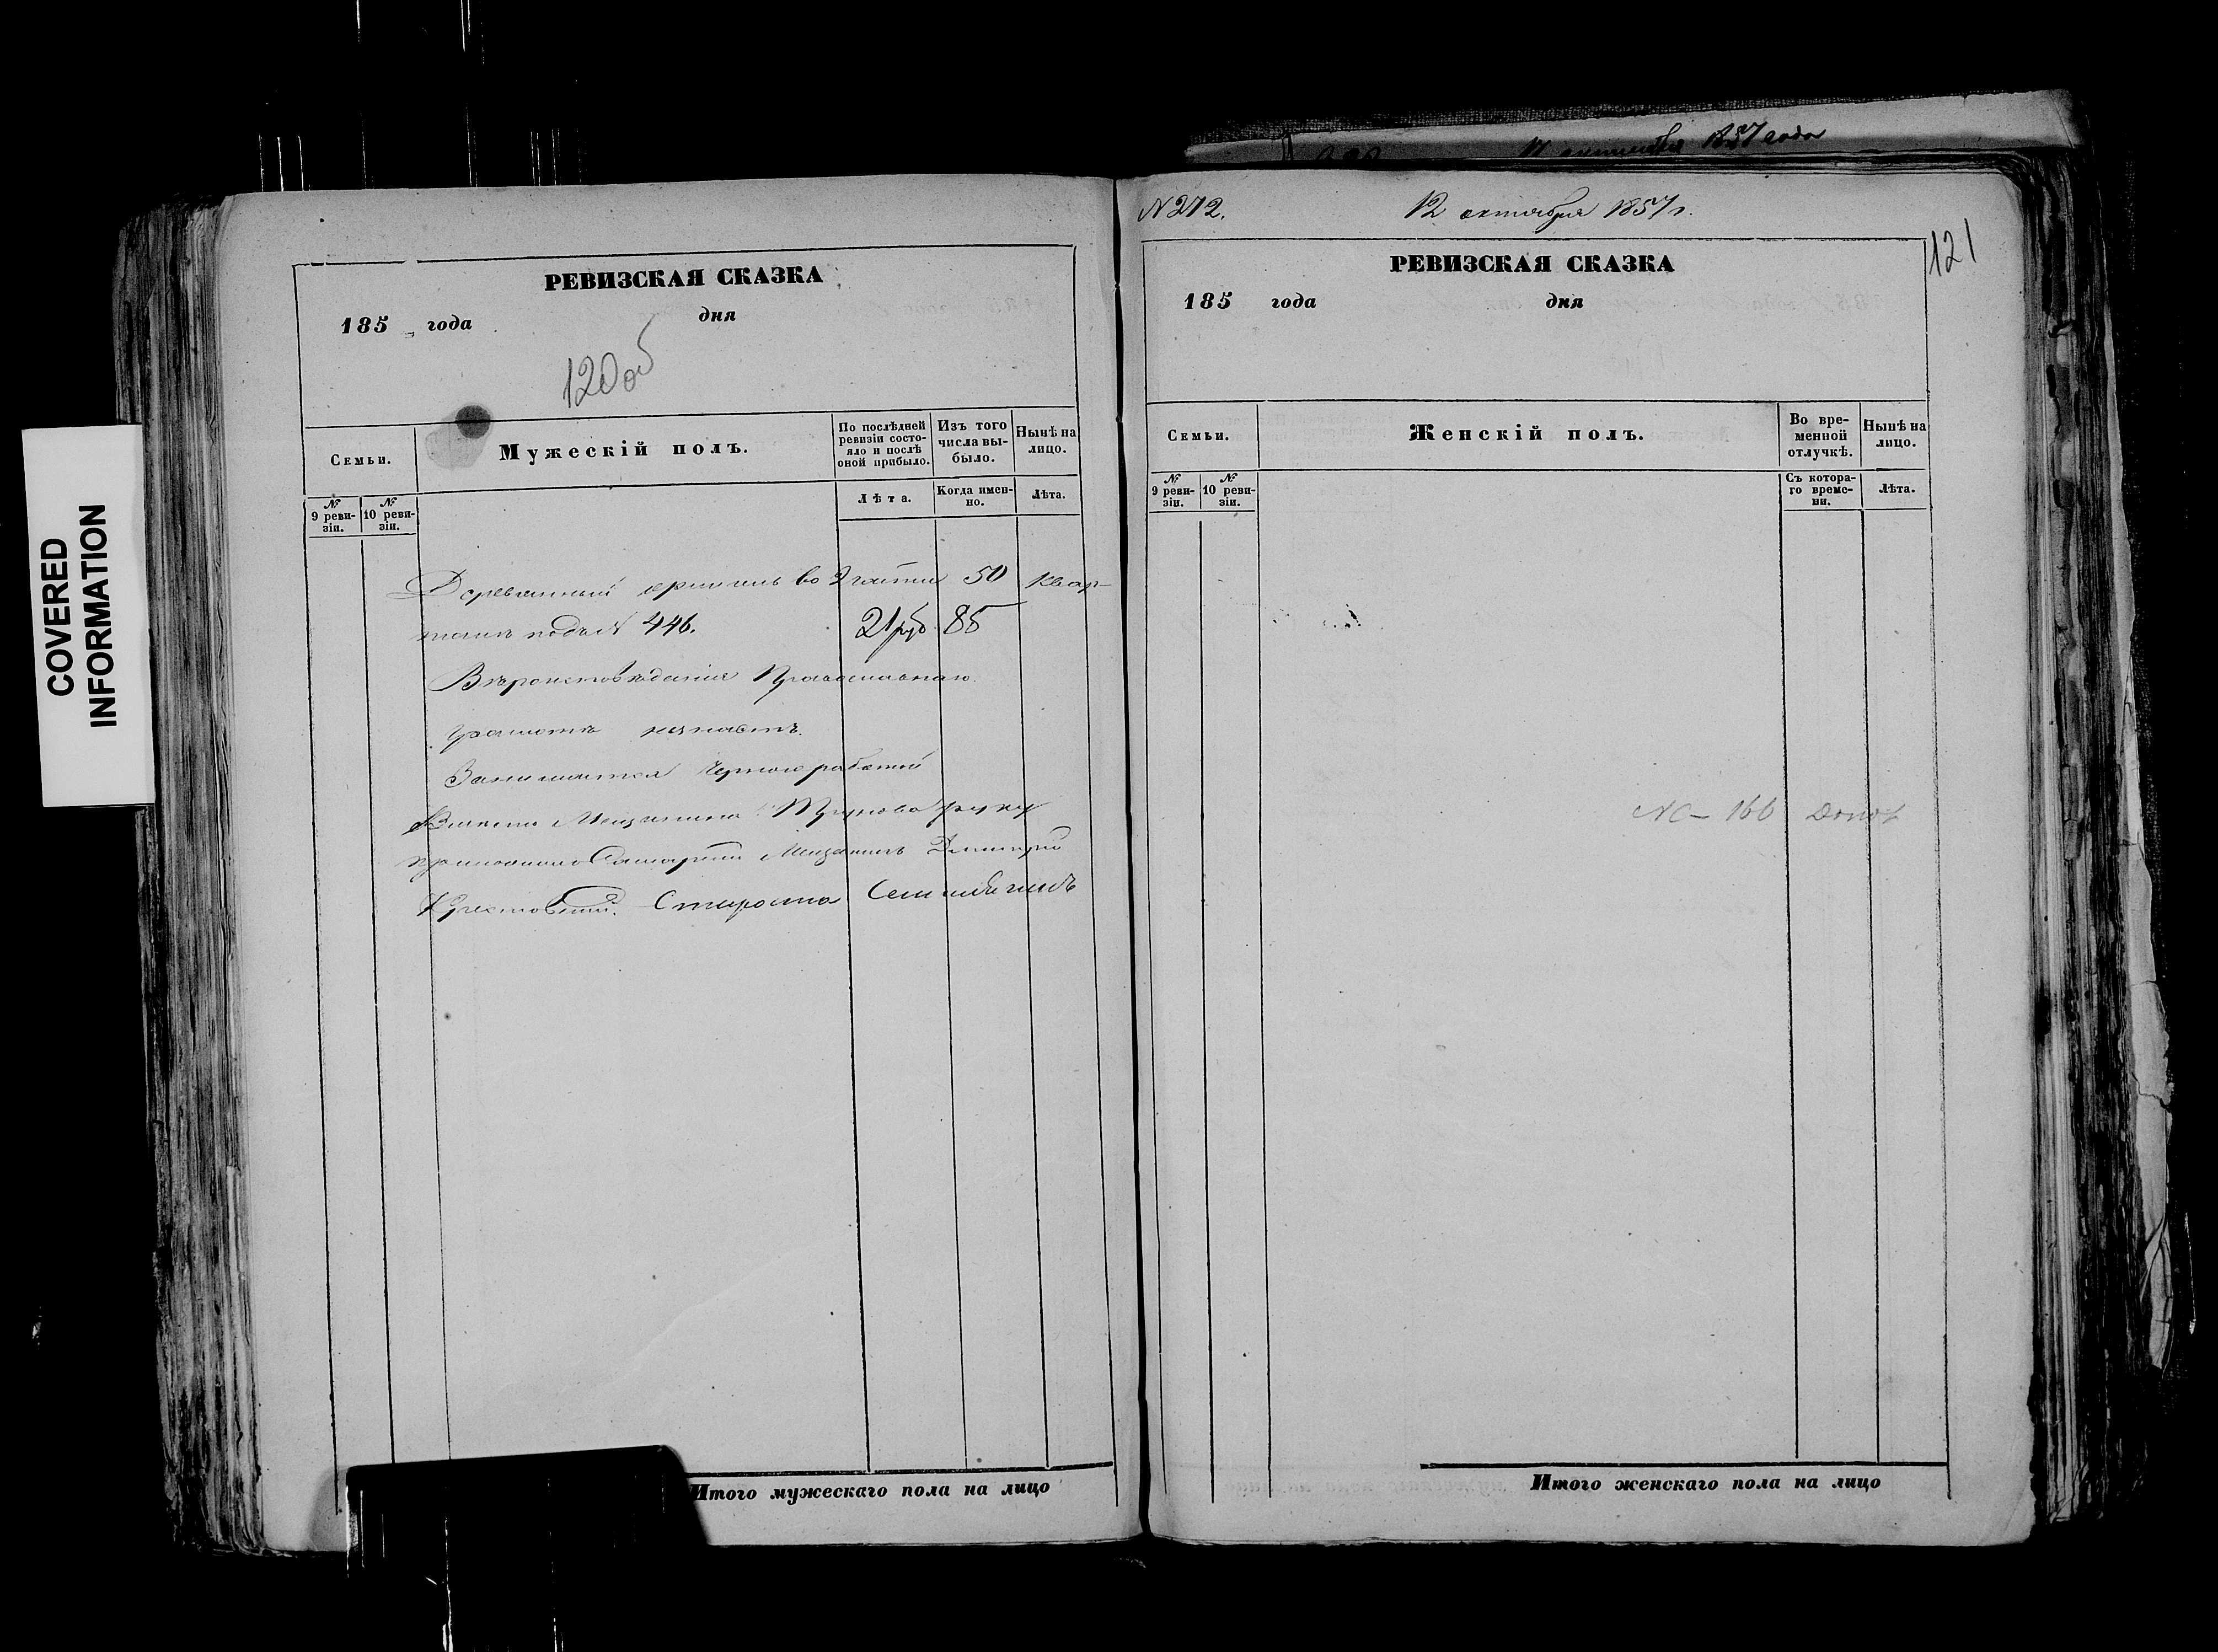 COVERED
INFORMATION
РЕВИЗСКАЯ СКАЗКА
185 года дня
120об
Семьи.
Мужескій полъ.
По послѣдней ревизіи состояло и послѣ оной прибыло.
Изъ того числа выбыло.
Нынѣ на лицо.
№ 9 ревизіи.
№ 10 ревизіи.
Лѣта.
Когда именно.
Лѣта.
Деревянный во 2 части 50 квар-
талѣ подъ № 446. 21 руб 85
Вѣроисповѣданія Православнаго.
грамотѣ незнаетъ.
Занимается Черною работой
Мещанина руку
приложилъ Самарскій Мещанинъ Дмитрій
Староста
N 272. 12 октября 1857 г.
121
РЕВИЗСКАЯ СКАЗКА
185 года дня
Семьи.
Женскій полъ.
Во временной отлучкѣ.
Нынѣ на лицо.
№ 9 ревизіи.
№ 10 ревизіи.
Съ котораго времени.
Лѣта.
166
Итого мужескаго пола на лицо
Итого женскаго пола на лицо
1857 года